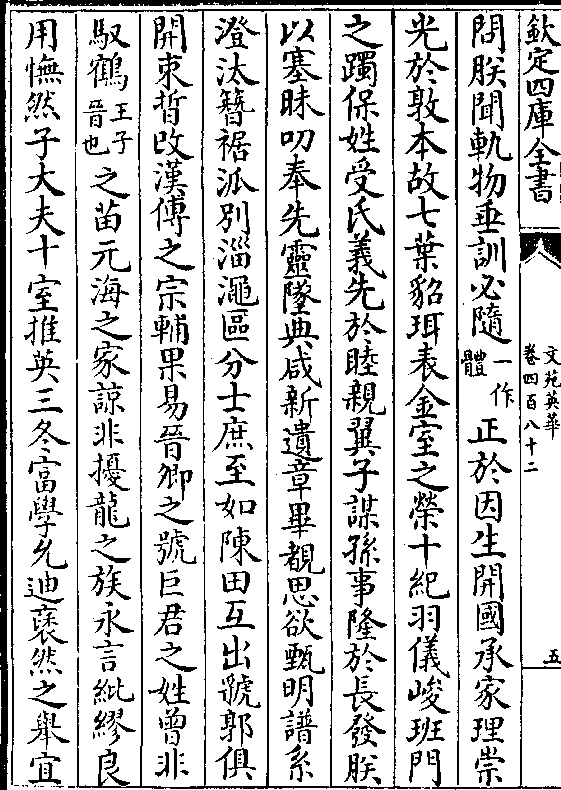 欽定四庫全書
文苑英華
卷四百八十二
五
問朕聞軌物垂訓必隨一作體正於因生開國承家理崇
光於敦本故七葉貂珥表金室之榮十紀羽儀峻班門
之躅保姓受氏義先於睦親翼子謀孫事隆於長發朕
以塞昧叨奉先靈墜典咸新遺章畢覩思欲甄明譜系
澄汰簪裾派別淄澠區分士庶至如陳田互出虢郭俱
開束晳攺漢傅之宗輔果易晉卿之號巨君之姓曾非
馭鶴王子晉也之苗元海之家諒非擾龍之族永言紕繆良
用憮然子大夫十室推英三冬富學允迪褎然之舉宜